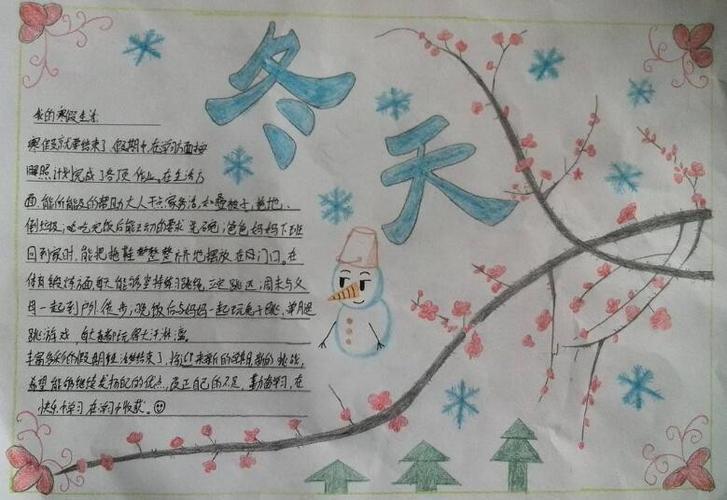 冬
天
我的寒假生活
寒假就要结束了,假期中,在学习方面按
照计划完成了各项作业,在生活方
面,能力所能及的帮助大人干点家务活,如叠被子、拖地、
倒垃圾,吃完饭后能主动的要求洗碗,爸爸妈妈下班
回到家时,能把拖鞋整整齐齐地摆放在门口。在
体育锻炼方面,每天能够坚持练习跳绳、立定跳远,周末与父
母一起到户外徒步,晚饭后与妈妈一起玩兔子跳、单腿
跳游戏,每天都玩得大汗淋漓。
丰富多彩的假期生活结束了,将迎来新的学期,新的挑战,
希望能够继续发扬的优点,改正自己的不足,勤奋学习,在
快乐中学习,在学习中收获。